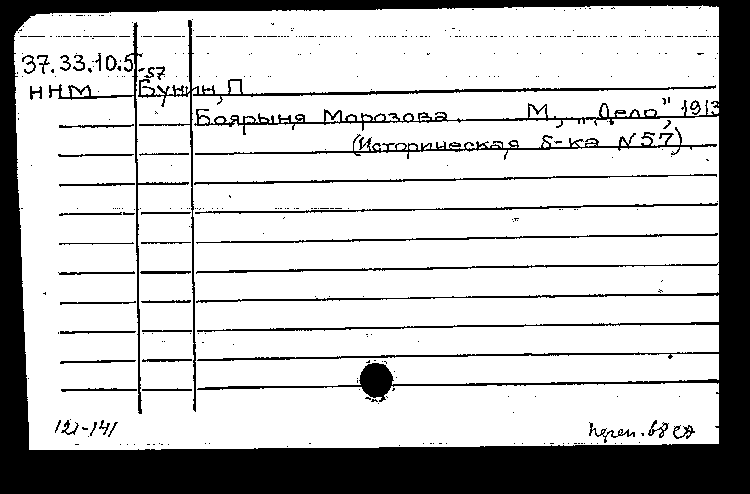 37.33.10.5-57
ННМ Бунин, П.
Боярыня Морозова. М., „Дело", 1913
(Историческая б-ка N 57).
121-141